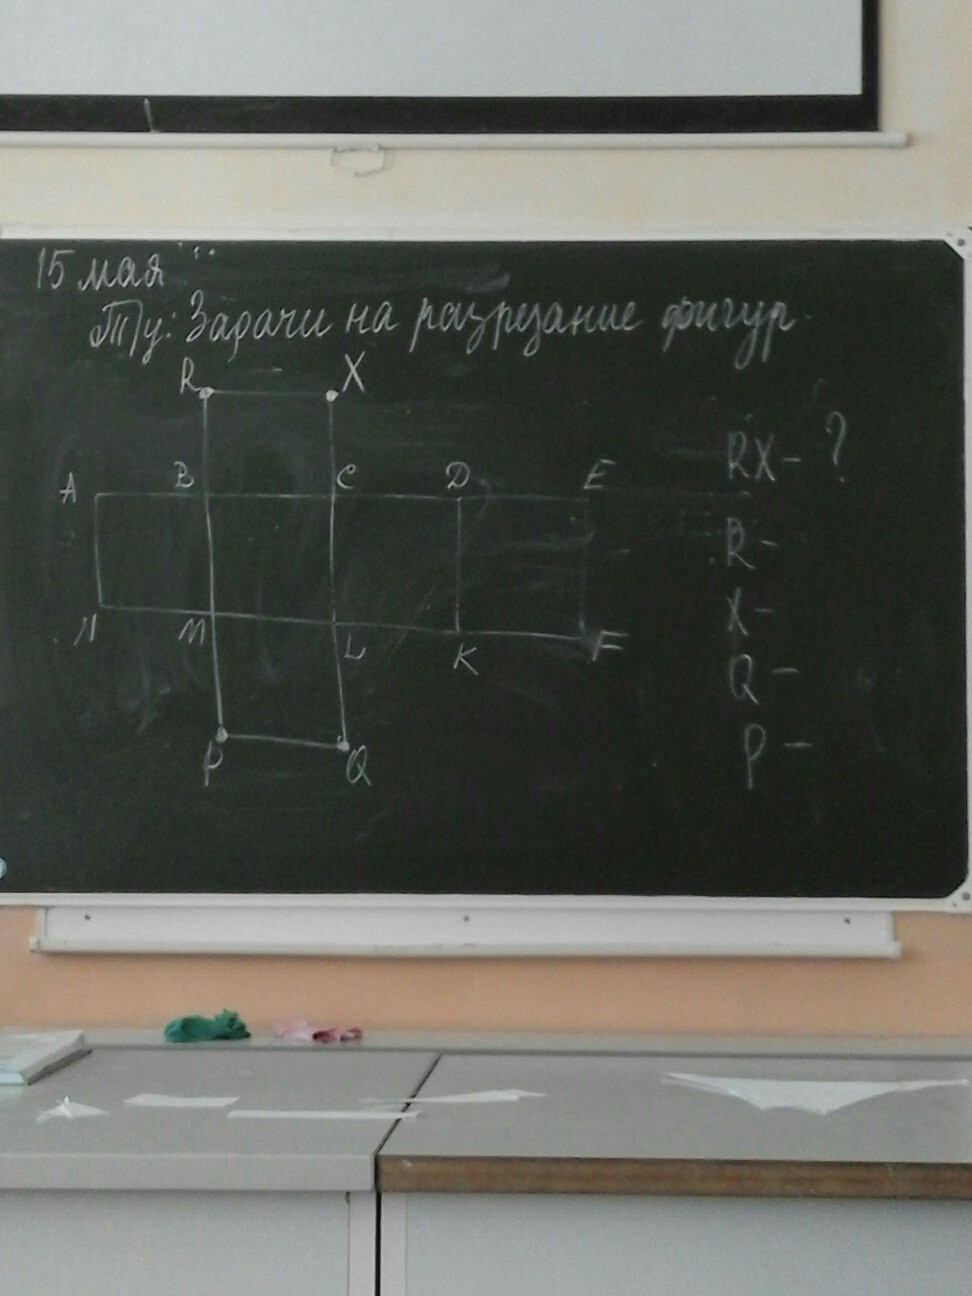 15 мая
Ту: Задачи на разрезание фигур.
R X
A B C D E
N M L K F
P Q
RX - ?
R -
X -
Q -
P -